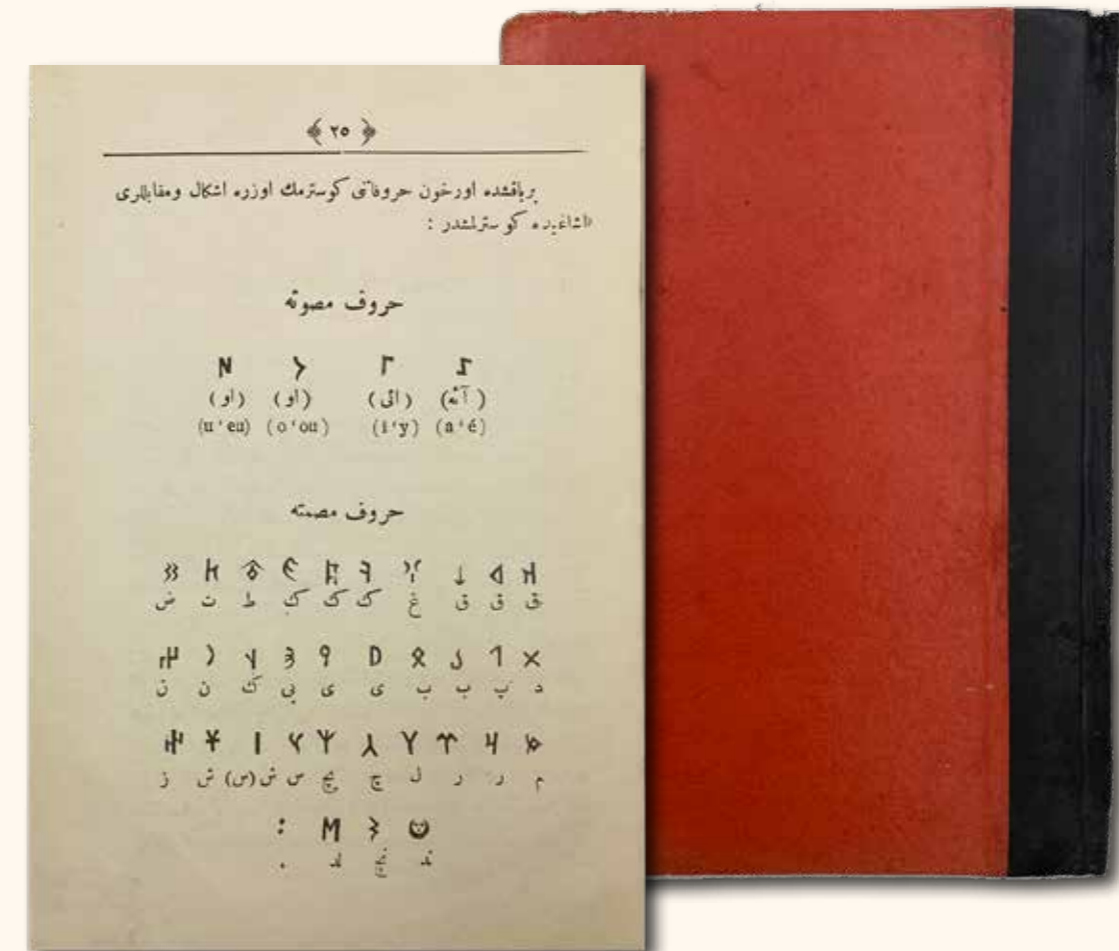 ﴾ ٢٥ ﴿
برباقشده اورخون حروفاتی كوسترمك اوزره اشكال ومقابللری
اشاغیده كوسترلمشدر :
حروف مصوته
𐰀 𐰃 𐰆 𐰇
(آئه) (ائی) (او) (او)
(u'eu) (o'ou) (i'y) (a'é)
حروف مصمته
𐰴 𐰶 𐰸 𐰍 𐰚 𐰜 𐰏 𐱃 𐱅 𐰑
ق ق ق غ ك ك ك ط ت ض
𐰓 𐰯 𐰉 𐰋 𐰖 𐰘 𐰪 𐰭 𐰣 𐰤
د پ ب ب ی ی نی ڭ ن ن
𐰢 𐰺 𐰼 𐰠 𐰲 𐰱 𐰽 𐰾 𐱁 𐰔
م ر ر ل چ یچ س ش(س) ش ز
𐰦 𐰨 𐰡 :
ند نچ لد .